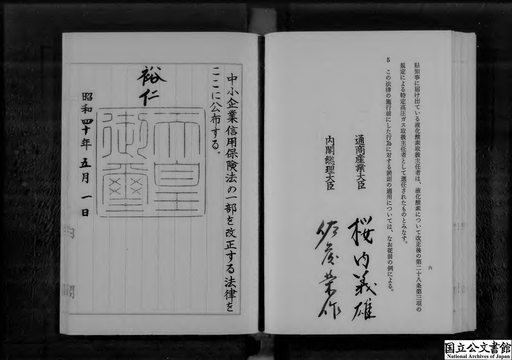 県知事に届け出ている液化酸素取扱主任者は、液化酸素について改正後の第二十八条第三項の
規定による特定高圧ガス取扱主任者として選任されたものとみなす。
5 この法律の施行前にした行為に対する罰則の適用については、なお従前の例による。
六
通商産業大臣 桜内義雄
内閣総理大臣 佐藤栄作
中小企業信用保険法の一部を改正する法律を
ここに公布する。
裕仁
天皇
御璽
昭和四十年五月一日
内閣
国立公文書館
National Archives of Japan